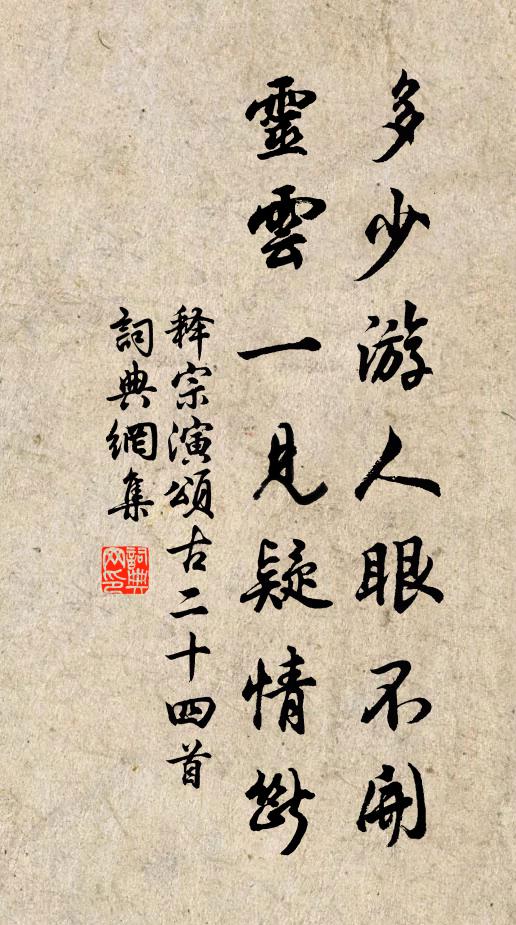 多少游人眼不開
靈雲一見疑情斷
释宗演頌古二十四首
詞典網集
詞典网印